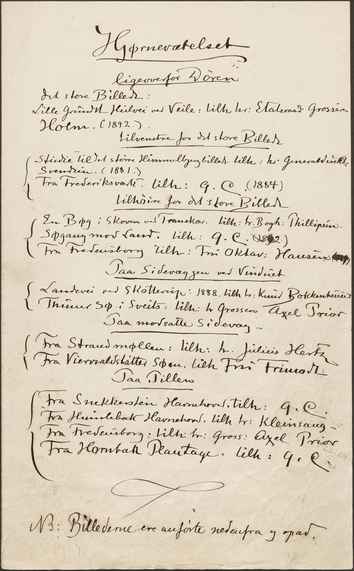 Hjørneværelset
ligeoverfor Døren
det store Billede:
Lille Grundet Hulvei ved Veile: tilh: hr: Etatsraad Grosserer
Holm. (1892).
tilvenstre for det store Billede
Studie til det større Himmelbjerg tilh: hr: Generaldirektør
Svendsen. (1881.)
Fra Frederiksværk. tilh: G. C. (1884)
tilhöire for det store Billede
En Bøg i Skoven ved Tranekær. tilh: hr. Bogh: Philipsen.
Søgang mod Land. tilh: G. C.
Fra Fredensborg tilh: Frü Oktav: Hansen
Paa Sidevæggen ved Vinduet
Landevei ved Skotterup: 1888. tilh hr: Knud
Thuner Sø i Sveits. tilh: hr Grosserer Axel Prior
Paa modsatte Sidevæg
Fra Strandmøllen: tilh: hr: Julius Hertz
Fra Vierwaldstätter Søen. tilh Frü Trimodt
Paa Pillen
Fra Snekkersten Havnehoved. tilh: G. C.
Fra Humlebæk Havnehoved. tilh hr: Kleinsang
Fra Fredensborg: tilh: hr: Gross: Axel Prior
Fra Hornbæk Plantage. tilh: G. C.
NB: Billederne ere anförte nedenfra og opad.